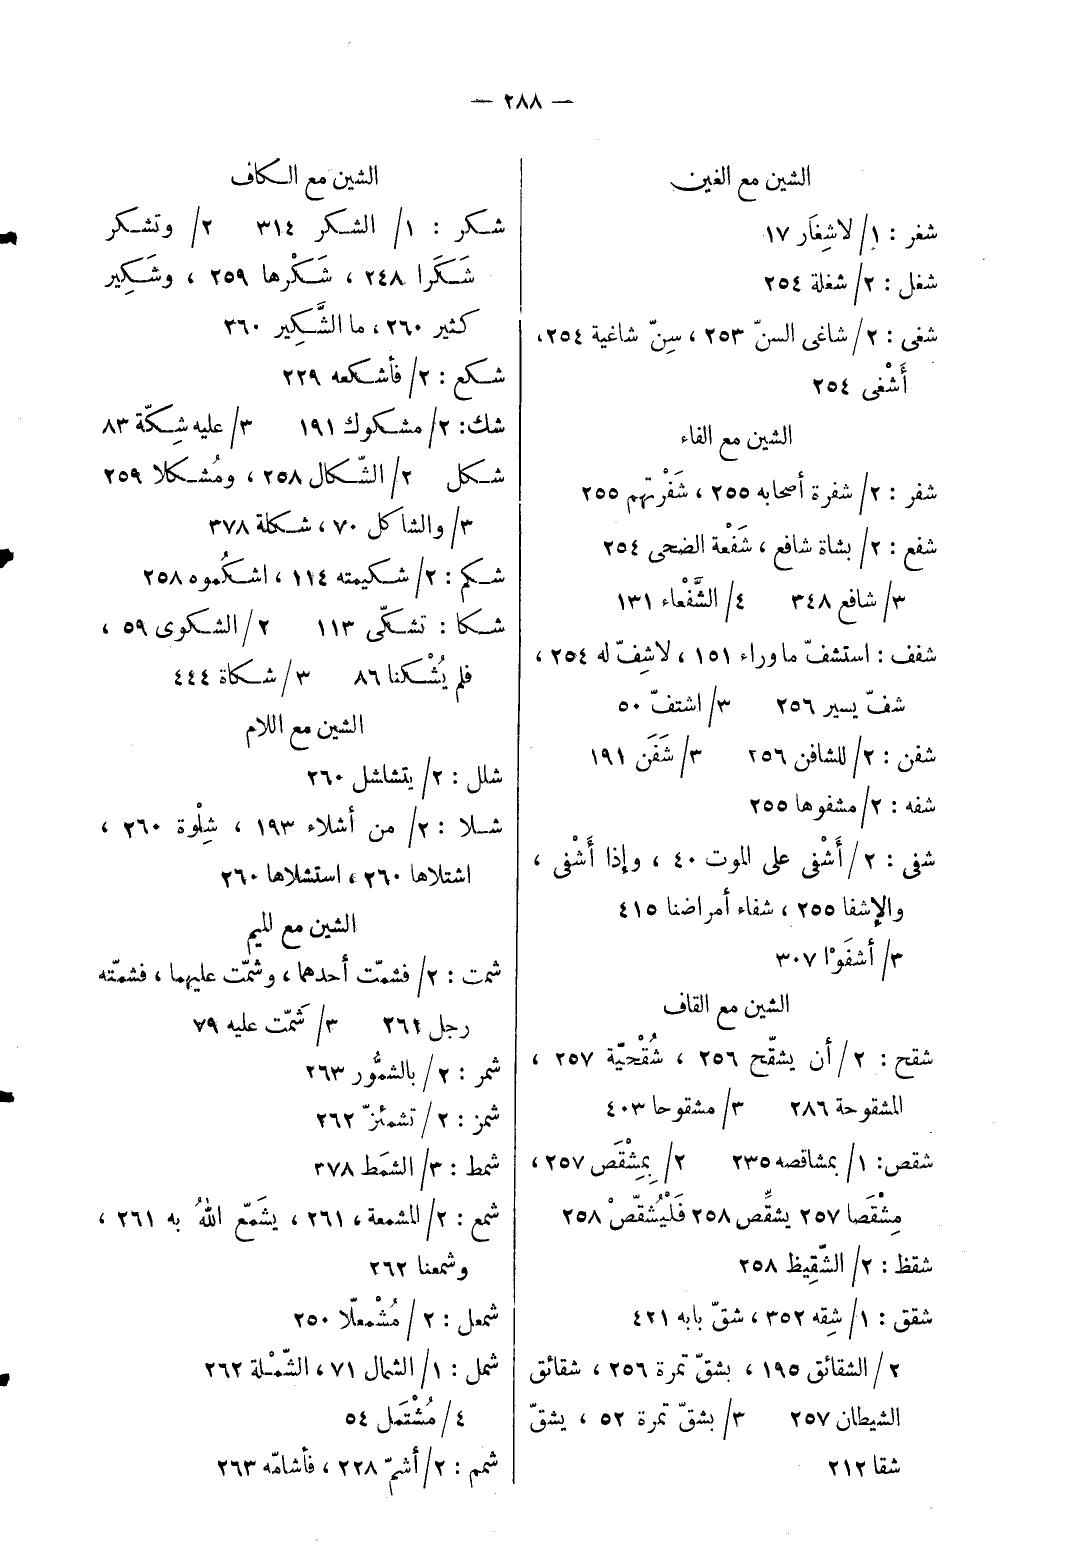 — ٢٨٨ —
الشين مع الغين
شغر : ١/ لاشِغَار ١٧
شغل : ٢/ شغلة ٢٥٤
شغى : ٢/ شاغى السنّ ٢٥٣ ، سِنّ شاغية ٢٥٤،
أَشْغى ٢٥٤
الشين مع الفاء
شفر : ٢/ شفرة أصحابه ٢٥٥ ، شَفْرتهم ٢٥٥
شفع : ٢/ بشاة شافع ، شَفْعة الضحى ٢٥٤
٣/ شافع ٣٤٨ ٤/ الشَّفْعاء ١٣١
شفف : استشفّ ماوراء ١٥١ ، لاشِفّ له ٢٥٤ ،
شفّ يسير ٢٥٦ ٣/ اشتفّ ٥٠
شفن : ٢/ للشافن ٢٥٦ ٣/ شَفَن ١٩١
شفه : ٢/ مشفوها ٢٥٥
شفى : ٢/ أَشْفى على الموت ٤٠ ، وإذا أَشْفى ،
والإشفا ٢٥٥ ، شفاء أمراضنا ٤١٥
٣/ أشفَوْا ٣٠٧
الشين مع القاف
شقح : ٢/ أن يشقّح ٢٥٦ ، شُقْحيّة ٢٥٧ ،
المشقوحة ٢٨٦ ٣/ مشقوحا ٤٠٣
شقص: ١/ بمشاقصه ٢٣٥ ٢/ بِمِشْقَص ٢٥٧ ،
مِشْقَصا ٢٥٧ يشقِّص ٢٥٨ فَلْيُشقّصْ ٢٥٨
شقظ : ٢/ الشّقِيظ ٢٥٨
شقق : ١/ شِقه ٣٥٢ ، شقّ بابه ٤٢١
٢/ الشقائق ١٩٥ ، بشقّ تمرة ٢٥٦ ، شقائق
الشيطان ٢٥٧ ٣/ بشقّ تمرة ٥٢ ، يشقّ
شقا ٢١٢
الشين مع الكاف
شكر : ١/ الشكر ٣١٤ ٢/ وتشكر
شَكَرا ٢٤٨ ، شَكْرها ٢٥٩ ، وشَكِير
كثير ٢٦٠ ، ما الشَّكِير ٢٦٠
شكع : ٢/ فأشكعه ٢٢٩
شك: ٢/ مشكوك ١٩١ ٣/ عليه شِكّة ٨٣
شكل ٢/ الشّكال ٢٥٨ ، ومُشكلا ٢٥٩
٣/ والشاكل ٧٠ ، شكلة ٣٧٨
شكم : ٢/ شكيمته ١١٤ ، اشكُموه ٢٥٨
شكا : تشكّى ١١٣ ٢/ الشكوى ٥٩ ،
فلم يُشْكنا ٨٦ ٣/ شكاة ٤٤٤
الشين مع اللام
شلل : ٢/ يتشاشل ٢٦٠
شلا : ٢/ من أشلاء ١٩٣ ، شِلْوة ٢٦٠ ،
اشتلاها ٢٦٠ ، استشلاها ٢٦٠
الشين مع الميم
شمت : ٢/ فشمّت أحدهما ، وشمّت عليهما ، فشمّته
رجل ٢٦١ ٣/ شَمّت عليه ٧٩
شمر : ٢/ بالشمُّور ٢٦٣
شمز : ٢/ تشمئزّ ٢٦٢
شمط : ٣/ الشمَط ٣٧٨
شمع : ٢/ المشمعة ، ٢٦١ ، يشَمّع اللهُ به ٢٦١ ،
وشمعنا ٢٦٢
شمعل : ٢/ مُشْمعلّا ٢٥٠
شمل : ١/ الشمال ٧١ ، الشّمْلة ٢٦٢
٤/ مُشْتَمل ٥٤
شمم : ٢/ أشمّ ٢٢٨ ، فأشامّه ٢٦٣